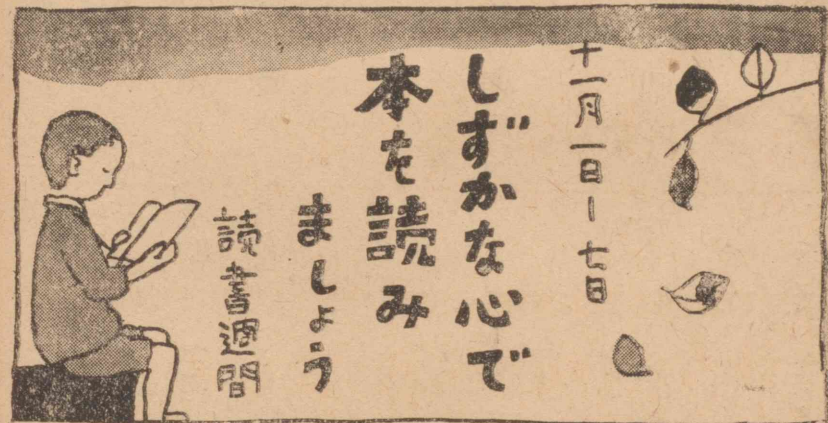 十一月一日ー七日
しずかな心で
本を読み
ましょう
読書週間